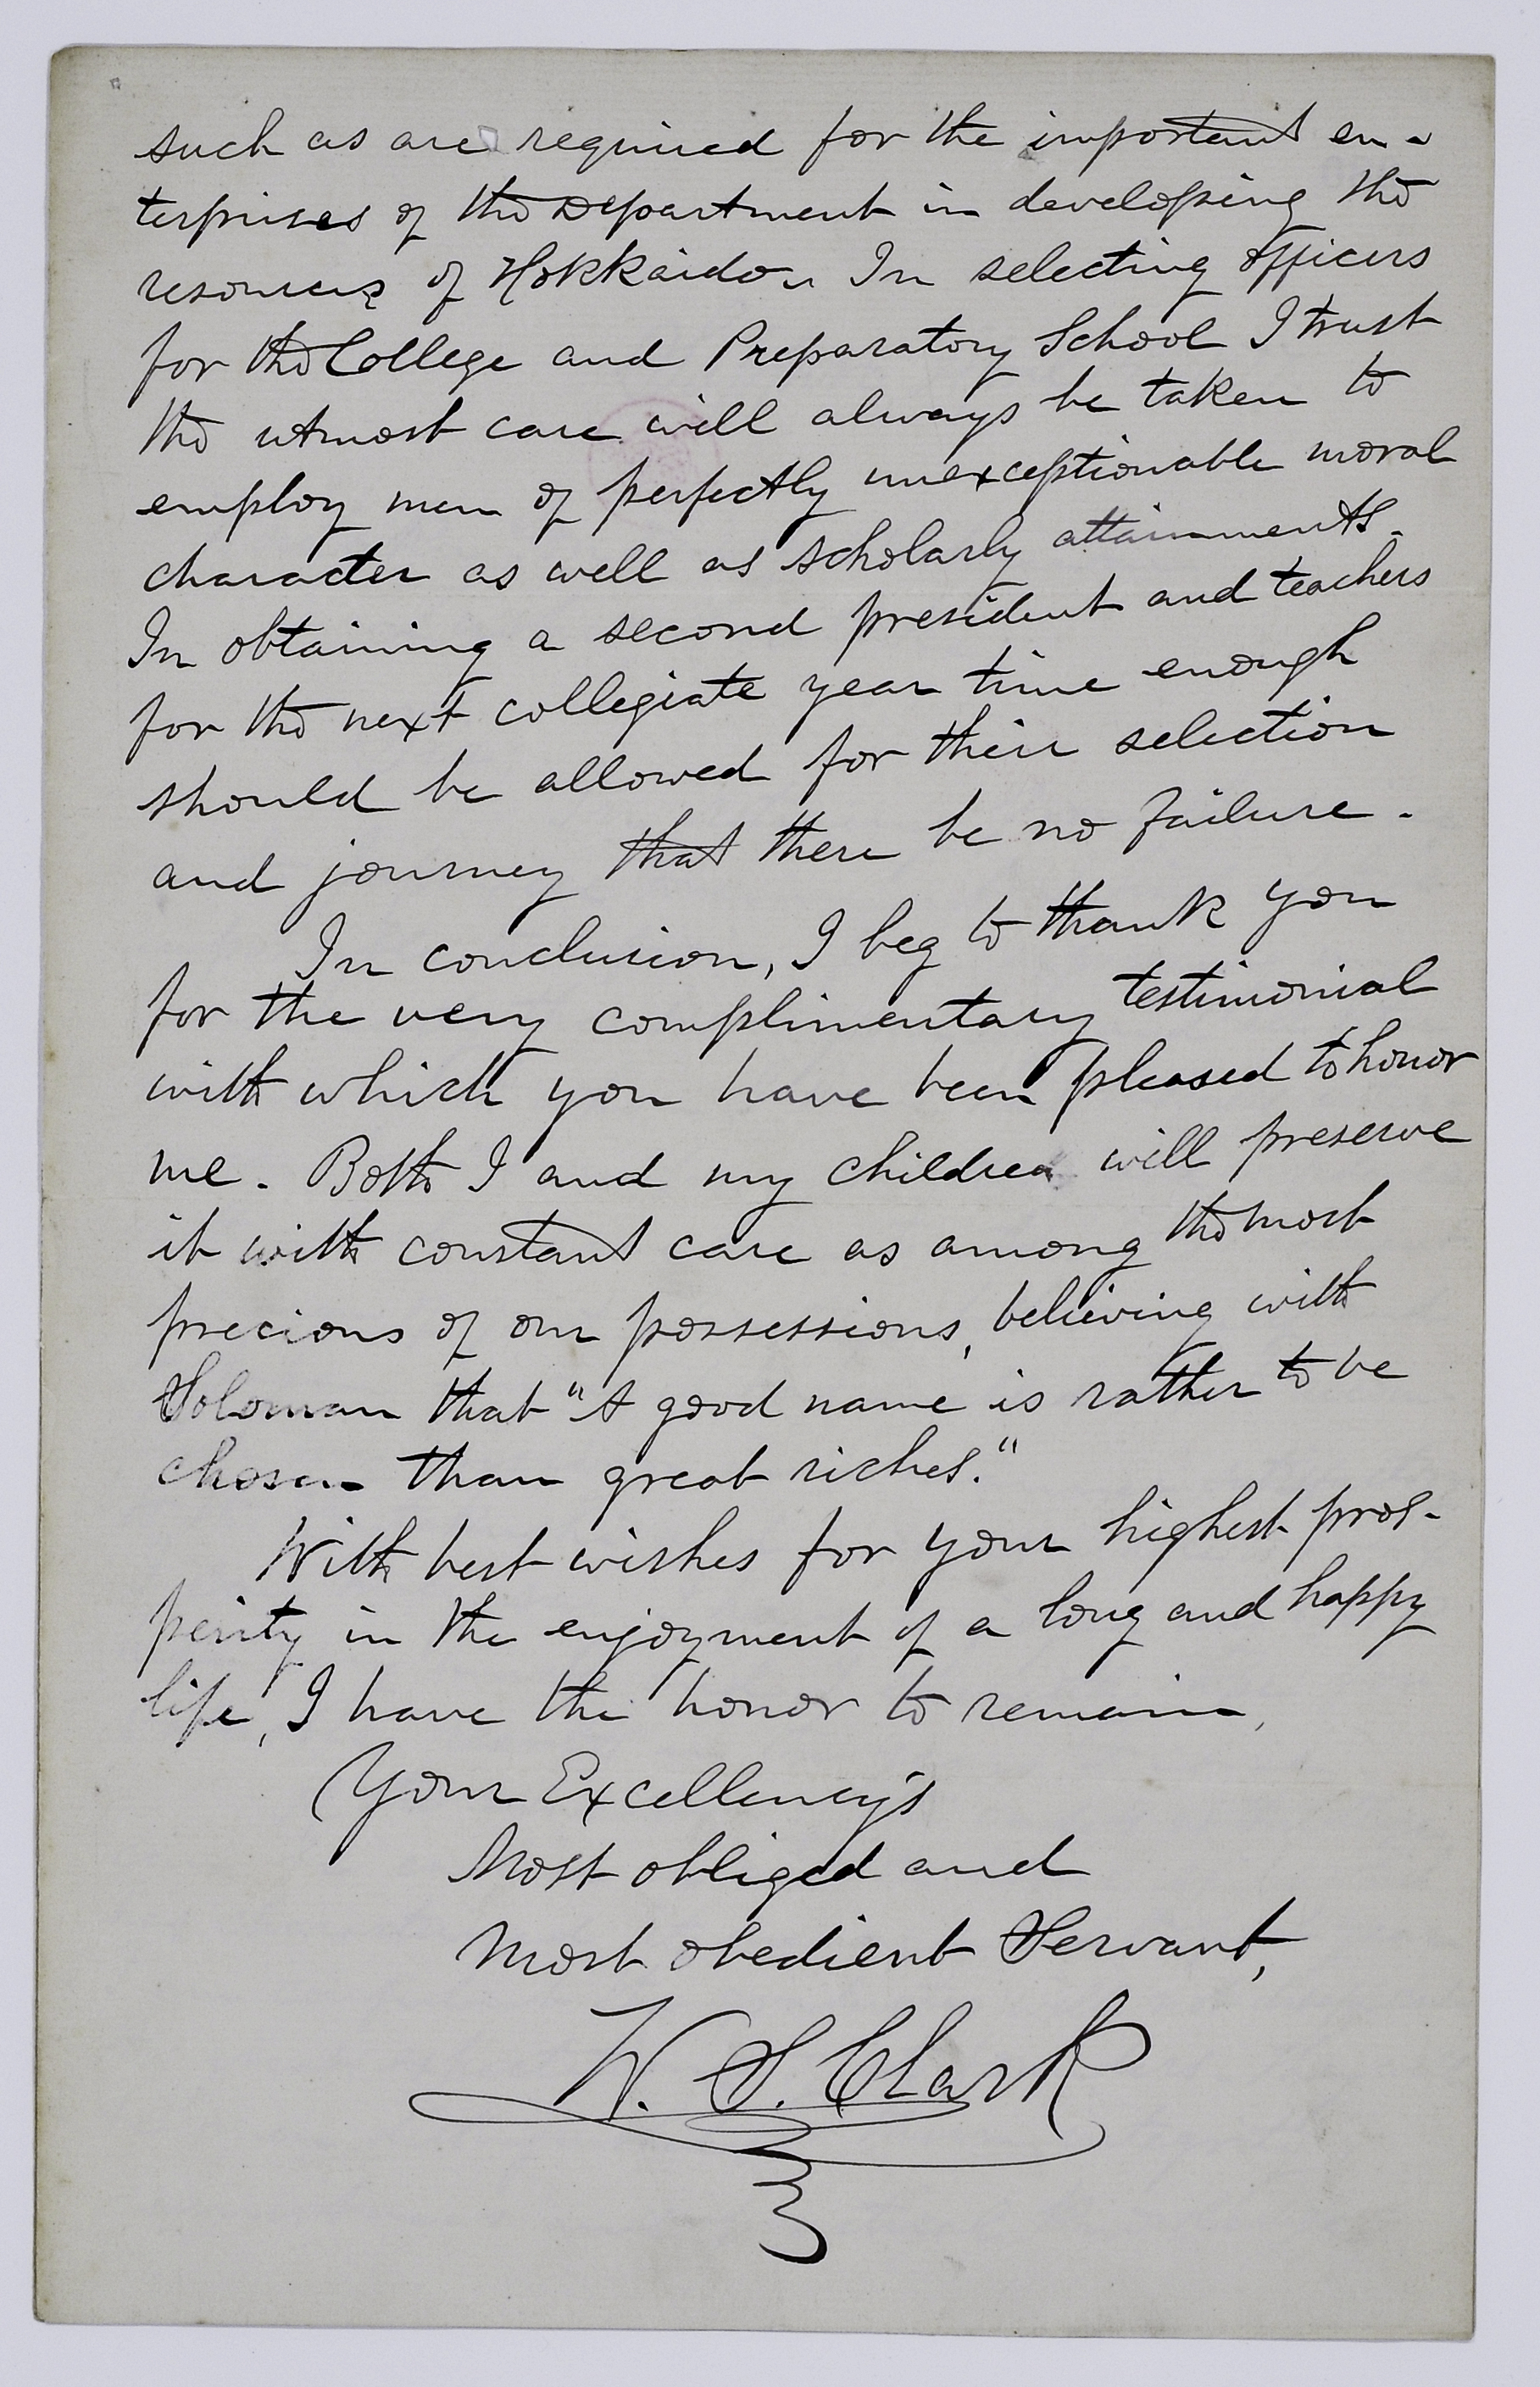 such as are required for the important en-
terprises of the Department in developing the
resources of Hokkaido. In selecting officers
for the College and Preparatory School I trust
the utmost care will always be taken to
employ men of perfectly unexceptionable moral
character as well as scholarly attainments.
In obtaining a second president and teachers
for the next collegiate year time enough
should be allowed for their selection
and journey that there be no failure.
In conclusion, I beg to thank you
for the very complimentary testimonial
with which you have been pleased to honor
me. Both I and my children will preserve
it with constant care as among the most
precious of our possessions, believing with
Soloman that "A good name is rather to be
chosen than great riches."
With best wishes for your highest pros-
perity in the enjoyment of a long and happy
life, I have the honor to remain,
Your Excellency's
Most obliged and
Most obedient Servant,
W. S. Clark